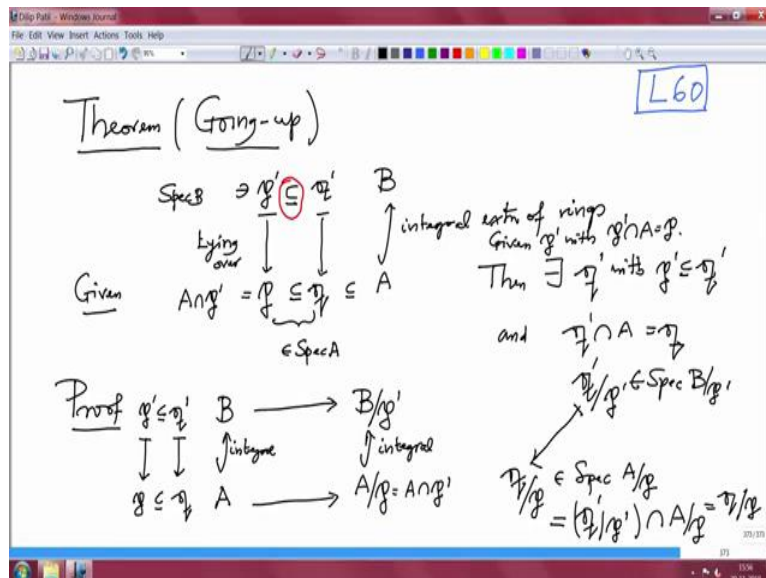 Dilip Patil - Windows Journal
File Edit View Insert Actions Tools Help
L60
Theorem (Going-up)
Spec B ∋ 𝔭' ⊆ 𝔮' B
Lying over
integral extn of rings
Given 𝔭' with 𝔭'∩A=𝔭.
Given A∩𝔭' = 𝔭 ⊆ 𝔮 ⊆ A
∈ Spec A
Then ∃ 𝔮' with 𝔭'⊆𝔮'
and 𝔮'∩A = 𝔮
Proof 𝔭'⊆𝔮' B ⟶ B/𝔭'
𝔮'/𝔭' ∈ Spec B/𝔭'
integral integral
𝔭 ⊆ 𝔮 A ⟶ A/𝔭 = A∩𝔭'
𝔮/𝔭 ∈ Spec A/𝔭
= (𝔮'/𝔭') ∩ A/𝔭 = 𝔮/𝔭
373/373
373
15:56